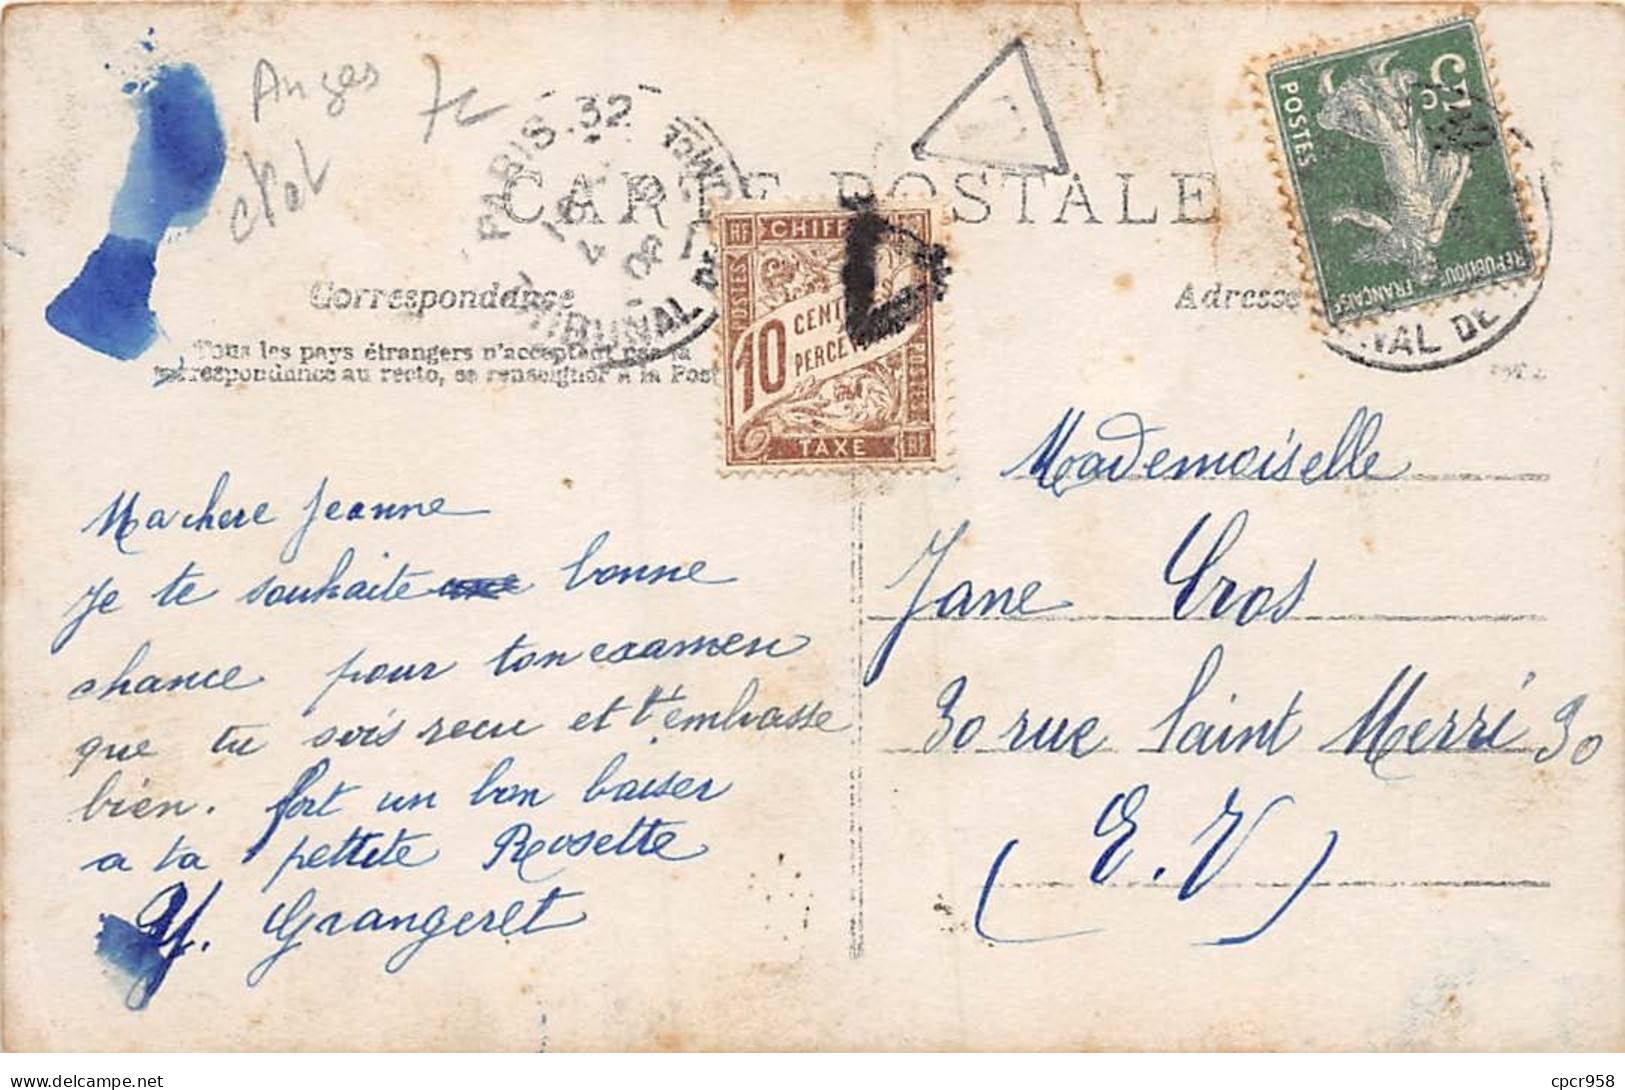 Anges 7c
etat
PARIS .32
TRIBUNAL DE
CARTE POSTALE
RF CHIFF
POSTES
10 CENT
PERCEV
TAXE RF
5c
POSTES
REPUBLIQUE FRANÇAISE
NAL DE
Correspondance
Adresse
Tous les pays étrangers n'acceptent pas la
correspondance au recto, se renseigner à la Post
Ma chere Jeanne
je te souhaite bonne
chance pour ton examen
que tu sois recu et t'embrasse
bien. fort un bon baiser
a ta pettite Rosette
Y. Grangeret
Mademoiselle
Jane Cros
30 rue Saint Merri 30
(E.V)
cpcr958